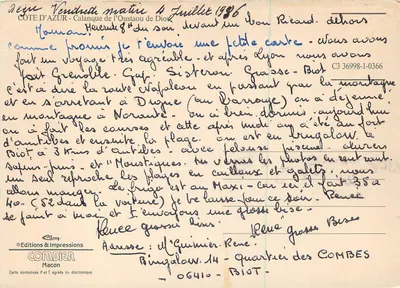 reçu Vendredi matin 4 Juillet 1986
CÔTE D'AZUR - Calanque de l'Oustaou de Diou
Mercredi 8h du soir, devant un bon Ricard. dehors
Maman
comme promis je t'envoie une petite carte. Nous avons
fait un voyage très agréable. et après Lyon nous avons
pris Grenoble. Gap Sisteron Grasse. Biot
C3 36998-1-0366
c'est à dire la route Napoléon en passant par la montagne
et en s'arretant à Digne on a déjeuné
en montagne à Norante. on a bien dormi. aujourd'hui
on a fait les courses et cette après midi on a été au fort
d'antibes et ensuite la plage. on est en bungalow à
BIOT à 3 Kms d'antibes. avec pelouse piscine. oliviers
Sapins. pins. et "Moustiques. tu verras les photos en rentrant.
un seul reproche les plages en cailloux et galets. nous
allons manger. le frigo est au Maxi. car ici il fait 35 à
40. (52 dans la voiture) Je te laisse pour ce soir. Renée
se joint à moi et t'envoyons une grosse bise.
Renée grosses bises
René grosses Bises
Editions & Impressions
COMBIER
Macon
Carte normalisée P et T agréée tri électronique
Adresse: Mr Guimier René.
Bungalow 14 - Quartier des COMBES
06410 - BIOT -